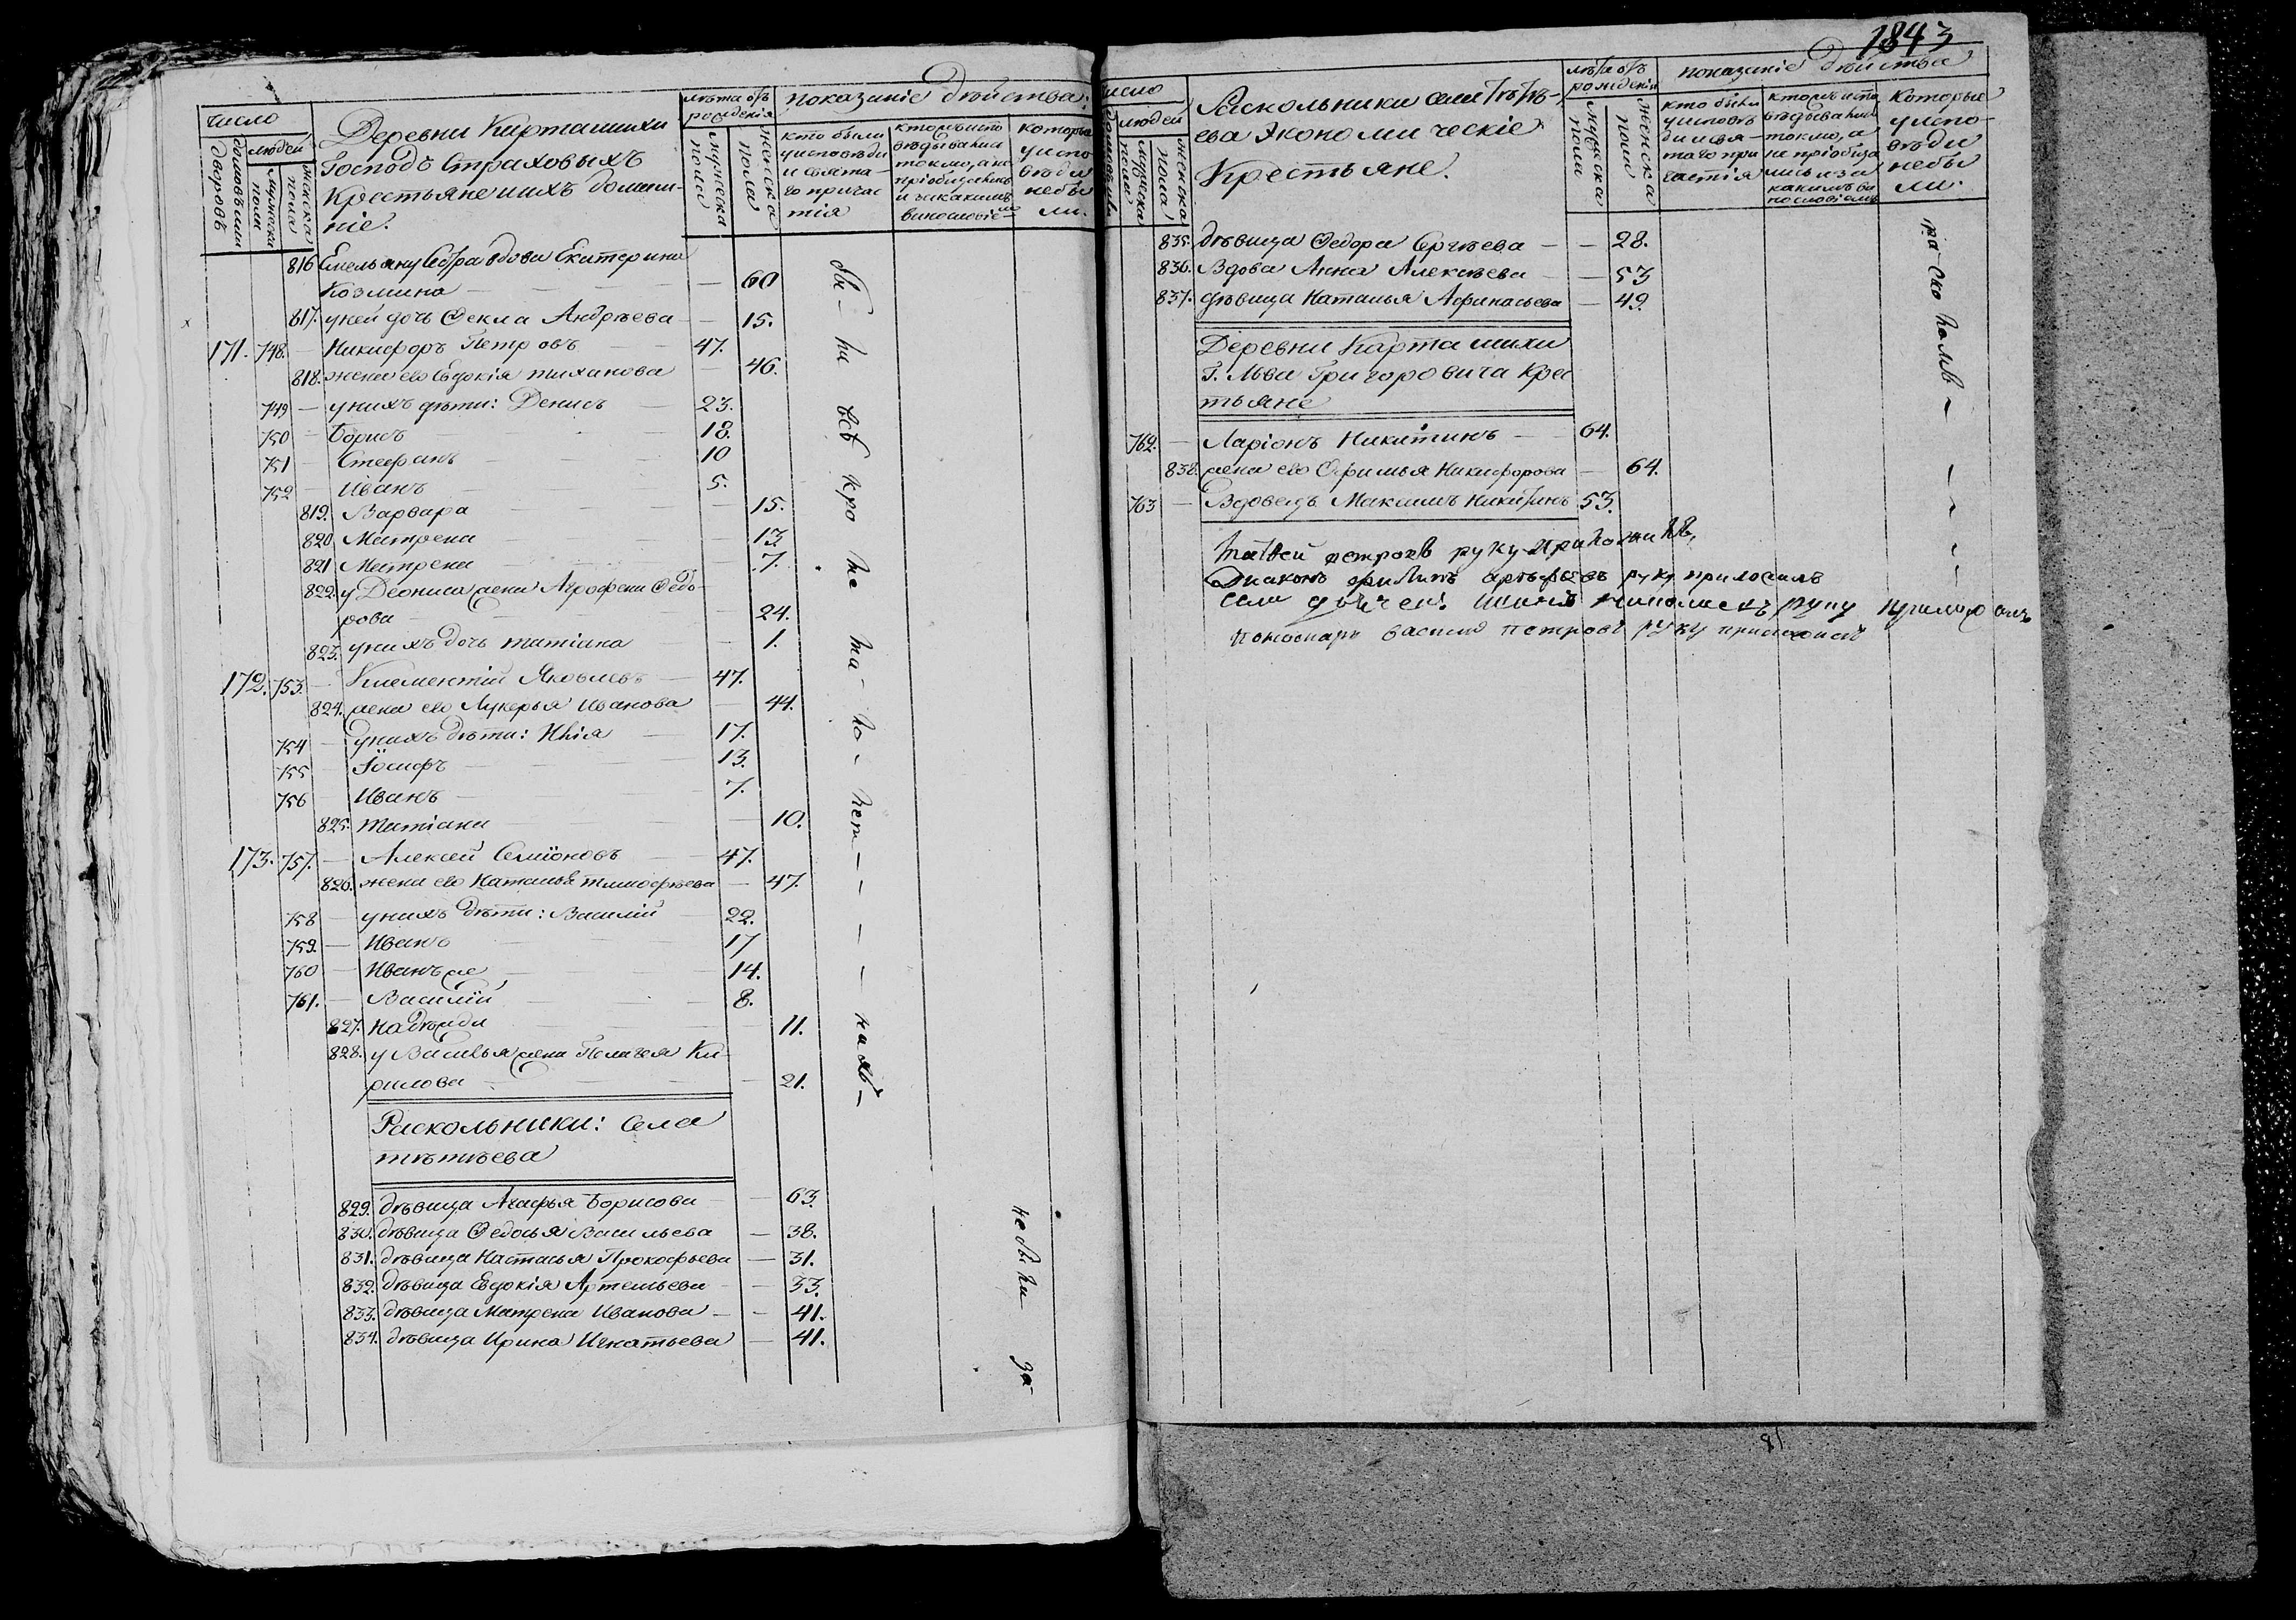 число
дворовъ
людей
мужеска пола
женска пола
Деревни Карташихи
Господъ Страховыхъ
Крестьяне ихъ домашние.
лѣта отъ рожденія
мужеска пола
женска пола
показаніе дѣйства.
кто были
у исповѣди
и свята-
го причас
тія
токмо, а не
которые
у испо-
вѣди
небы
ли.
816 вдова Екатерина
Козмина — 60
817. у ней дочь Фекла Андрѣева — 15.
171. 748. — Никифоръ Петровъ — 47.
818. жена ево Евдокія — 46.
749 — у нихъ дѣти: Денисъ — 23.
750 — Борисъ — 18.
751 — Стефанъ — 10
752 — Иванъ — 5.
819. Варвара — 15.
820 Матрена — 13.
821 Матрена — 7.
822. у Дениса жена Аграфена Федо-
рова — 24.
823. у нихъ дочь татіана — 1.
172. 753. — Климентій Яковлевъ — 47.
824. жена ево Лукерья Иванова — 44.
754 — у нихъ дѣти: Илія — 17.
755 — Іосифъ — 13.
756 — Иванъ — 7.
825. татіана — 10.
173. 757. — Алексей Семіоновъ — 47.
826. жена ево Наталья тимофѣева — 47.
758 — у нихъ дѣти: Василій — 22.
759. — Иванъ — 17
760 — Иванъ же — 14.
761. — Василій — 8.
827. надежда — 11.
828. у Василья жена Пелагея Ки-
рилова — 21.
бы- ли всѣ кро ме ма- ло- лет — — — — нахъ —
Раскольники: Села
тѣтѣева
829. дѣвица Агафья Борисова — 63.
830. дѣвица Федосья Васильева — 38.
831. дѣвица Настасья Прокофьева — 31.
832. дѣвица Евдокія Артемьева — 33.
833. дѣвица Матрена Иванова — 41.
834. дѣвица Ирина Игнатьева — 41.
не были за
1843
число
людей
мужеска пола
женска пола
Раскольники села Тѣтѣ-
ева Экономическіе
Крестьяне.
лѣта отъ рожденія
мужеска пола
женска пола
показаніе дѣйства
кто были
у исповѣ
ди и свя-
таго при
частія
токмо, а
не пріобща
лись и за
Которые
у испо-
вѣди
небы
ли.
835. дѣвица Федора Сергѣева — — 28.
836. Вдова Анна Алексѣева — — 53
837. дѣвица Наталья Афанасьева — 49.
Деревни Карташихи
Г. Льва Григоровича Крес
тьяне
762. — Ларіонъ Никитинъ — 64.
838. жена ево Офимья Никифорова — 64.
763 — Вдовецъ Максимъ Никитинъ 53.
ра ско ломъ —
петровъ руку приложилъ,
Диаконъ филипъ руку приложилъ
руку приложилъ
пономарь василий петровъ руку приложилъ